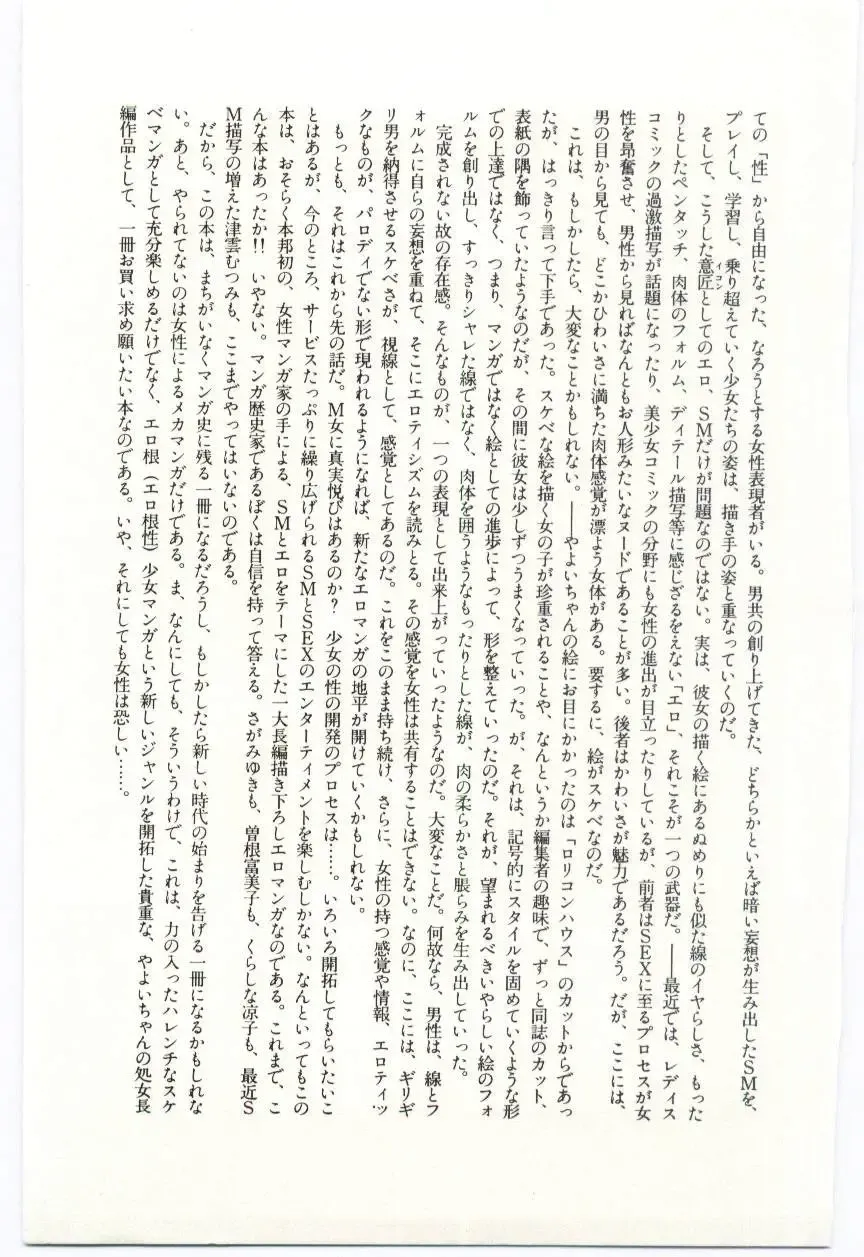 ての「性」から自由になった、なろうとする女性表現者がいる。男共の創り上げてきた、どちらかといえば暗い妄想が生み出したSMを、
プレイし、学習し、乗り超えていく少女たちの姿は、描き手の姿と重なっていくのだ。
そして、こうした意匠としてのエロ、SMだけが問題なのではない。実は、彼女の描く絵にあるぬめりにも似た線のイヤらしさ、もった
イコン
りとしたペンタッチ、肉体のフォルム、ディテール描写等に感じざるをえない「エロ」、それこそが一つの武器だ。――最近では、レディス
コミックの過激描写が話題になったり、美少女コミックの分野にも女性の進出が目立ったりしているが、前者はSEXに至るプロセスが女
性を昂奮させ、男性から見ればなんともお人形みたいなヌードであることが多い。後者はかわいさが魅力であるだろう。だが、ここには、
男の目から見ても、どこかひわいさに満ちた肉体感覚が漂よう女体がある。要するに、絵がスケベなのだ。
これは、もしかしたら、大変なことかもしれない。――やよいちゃんの絵にお目にかかったのは「ロリコンハウス」のカットからであっ
たが、はっきり言って下手であった。スケベな絵を描く女の子が珍重されることや、なんというか編集者の趣味で、ずっと同誌のカット、
表紙の隅を飾っていたようなのだが、その間に彼女は少しずつうまくなっていった。が、それは、記号的にスタイルを固めていくような形
での上達ではなく、つまり、マンガではなく絵としての進歩によって、形を整えていったのだ。それが、望まれるべきいやらしい絵のフォ
ルムを創り出し、すっきりシャレた線ではなく、肉体を囲うようなもったりとした線が、肉の柔らかさと脹らみを生み出していった。
完成されない故の存在感。そんなものが、一つの表現として出来上がっていったようなのだ。大変なことだ。何故なら、男性は、線とフ
ォルムに自らの妄想を重ねて、そこにエロティシズムを読みとる。その感覚を女性は共有することはできない。なのに、ここには、ギリギ
リ男を納得させるスケベさが、視線として、感覚としてあるのだ。これをこのまま持ち続け、さらに、女性の持つ感覚や情報、エロティッ
クなものが、パロディでない形で現われるようになれば、新たなエロマンガの地平が開けていくかもしれない。
もっとも、それはこれから先の話だ。M女に真実悦びはあるのか? 少女の性の開発のプロセスは……。いろいろ開拓してもらいたいこ
とはあるが、今のところ、サービスたっぷりに繰り広げられるSMとSEXのエンターティメントを楽しむしかない。なんといってもこの
本は、おそらく本邦初の、女性マンガ家の手による、SMとエロをテーマにした一大長編描き下ろしエロマンガなのである。これまで、こ
んな本はあったか!! いやない。マンガ歴史家であるぼくは自信を持って答える。さがみゆきも、曽根富美子も、くらしな凉子も、最近S
M描写の増えた津雲むつみも、ここまでやってはいないのである。
だから、この本は、まちがいなくマンガ史に残る一冊になるだろうし、もしかしたら新しい時代の始まりを告げる一冊になるかもしれな
い。あと、やられてないのは女性によるメカマンガだけである。ま、なんにしても、そういうわけで、これは、力の入ったハレンチなスケ
ベマンガとして充分楽しめるだけでなく、エロ根（エロ根性）少女マンガという新しいジャンルを開拓した貴重な、やよいちゃんの処女長
編作品として、一冊お買い求め願いたい本なのである。いや、それにしても女性は恐しい……。